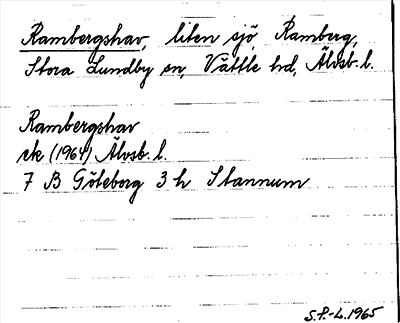 Rambergshav, liten sjö, Ramberg,
Stora Lundby sn, Vättle hd, Älvsb. l.
Rambergshav
ek (1964) Älvsb. l.
7 B Göteborg 3 h Stannum
S.P.-L. 1965